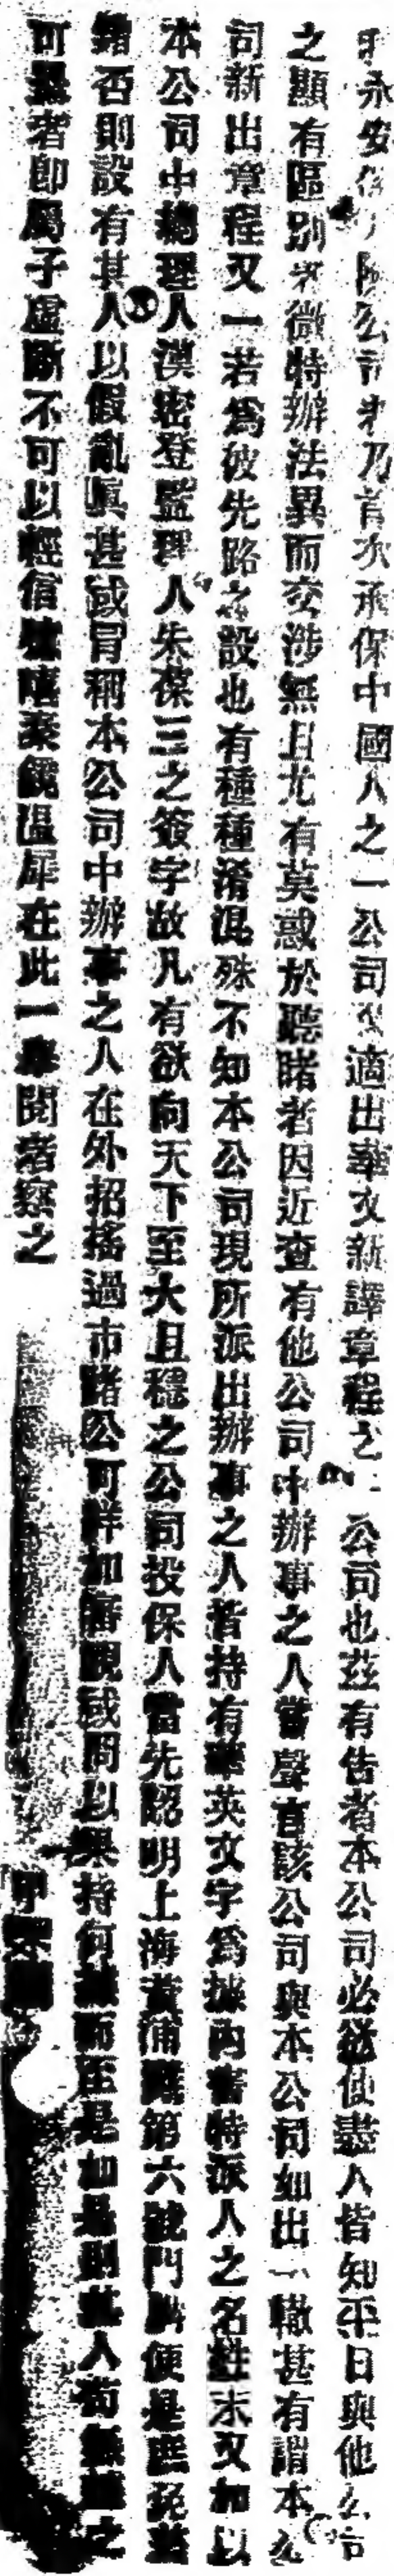 永安保險公司者乃首次承保中國人之一公司又適出華文新譯章程之一公司也茲有告者本公司必欲使盡人皆知平日與他公司
之顯有區別者微特辦法異而交涉無且尤有莫惑於聽睹者因近查有他公司中辦事之人嘗聲言該公司與本公司如出一轍甚有謂本公
司新出章程又一若為彼先路之設也有種種淆混殊不知本公司現所派出辦事之人皆持有華英文字為據內書特派人之名姓末又加以
本公司中總理人漢密登監理人朱葆三之簽字故凡有欲向天下至大且穩之公司投保人當先認明上海黃浦灘第六號門牌便是庶免
錯否則設有其人以假亂真甚或冒稱本公司中辦事之人在外招搖過市諸公可詳加審視或問以果持何據而至是如是則其人苟無據之
可呈者即屬子虛斷不可以輕信 溫犀在此一舉閱者察之